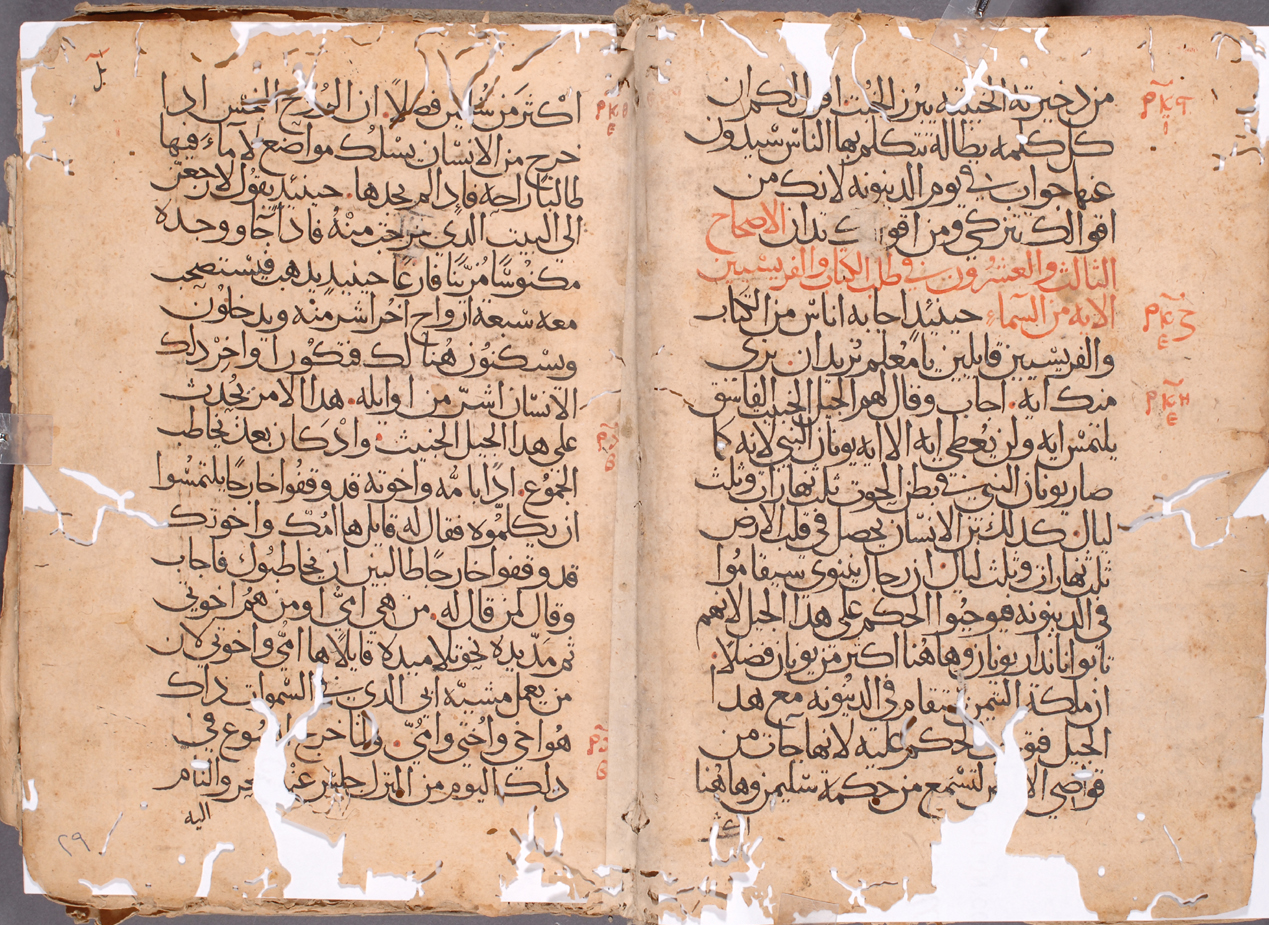 من ذخيرته الخبيثه يبرز الخبث اقول لكم ان
كل كلمه بطالة تتكلم بها الناس سيدون
عنها جواب في يوم الدينونه لانك من
اقوالك تتزكي ومن اقوالك تدان الاصحاح
الثالث والعشرون في طلب الكتاب والفريسيين
الايه من السماء حينئذ اجابه اناس من الكتاب
والفريسيين قايلين يا معلم نريد ان نرى
منك ايه. اجاب وقال لهم الجيل الخبيث الفاسق
يلتمس ايه ولن يُعطى ايه الا ايه يونان النبي لانه كما
صار يونان النبي في بطن الحوت ثلث نهارات وثلث
ليال. كذلك ابن الانسان يحصل في قلب الارض
ثلث نهارات وثلث ليال. ان رجال نينوى سيقاموا
في الدينونه فيوجبوا الحكم على هذا الجيل لانهم
تابوا بانذار يونان وهاهنا اكثر من يونان فضلاً.
ان ملكة التيمن ستقام في الدينونه مع هذا
الجيل فتوجب الحكم عليه لانها جات من
قواصي الارض لتسمع من حكمة سليمن وهاهنا
اكثر من سليمن فضلاً. ان الروح النجس اذا
خرج من الانسان يسلك مواضع لا ماء فيها
طالبًا راحه فاذا لم يجدها. حينئذ يقول لارجعن
الى البيت الذي خرجت منه فاذا جآ ووجده
مكنوسًا مُزينًا فارغًا حينيذ يذهب فيستصحب
معه سبعة ارواح اخر اشر منه ويدخلون
ويسكنون هُنالك فتكون اواخر ذلك
الانسان اشرّ من اوايله. هذا الامر يحُدث
على هذا الجيل الخبيث. واذ كان بعد يخاطب
الجموع. اذا بامه واخوته قد وقفوا خارجًا يلتمسُوا
ان يكلموه فقال له قايل ها امك واخوتك
قد وقفوا خارجًا طالبين ان يخاطبوك فاجاب
وقال لمن قال له. من هي امي او من هم اخوتي
ثم مدّ يده نحو تلاميذه قايلاً ها امي واخوتي لان
من يعمل مشيّة ابي الذي في السموات ذاك
هو اخي واُختي وامي. ولما خرج يسوع في
ذلك اليوم من المنزل جلس عند البحر والتام
اليه
٢٩